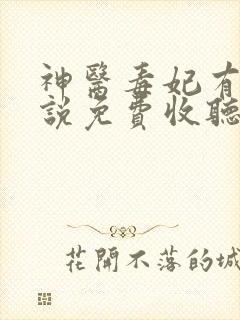 神醫毒妃有
說免費收聽
花開不落的城